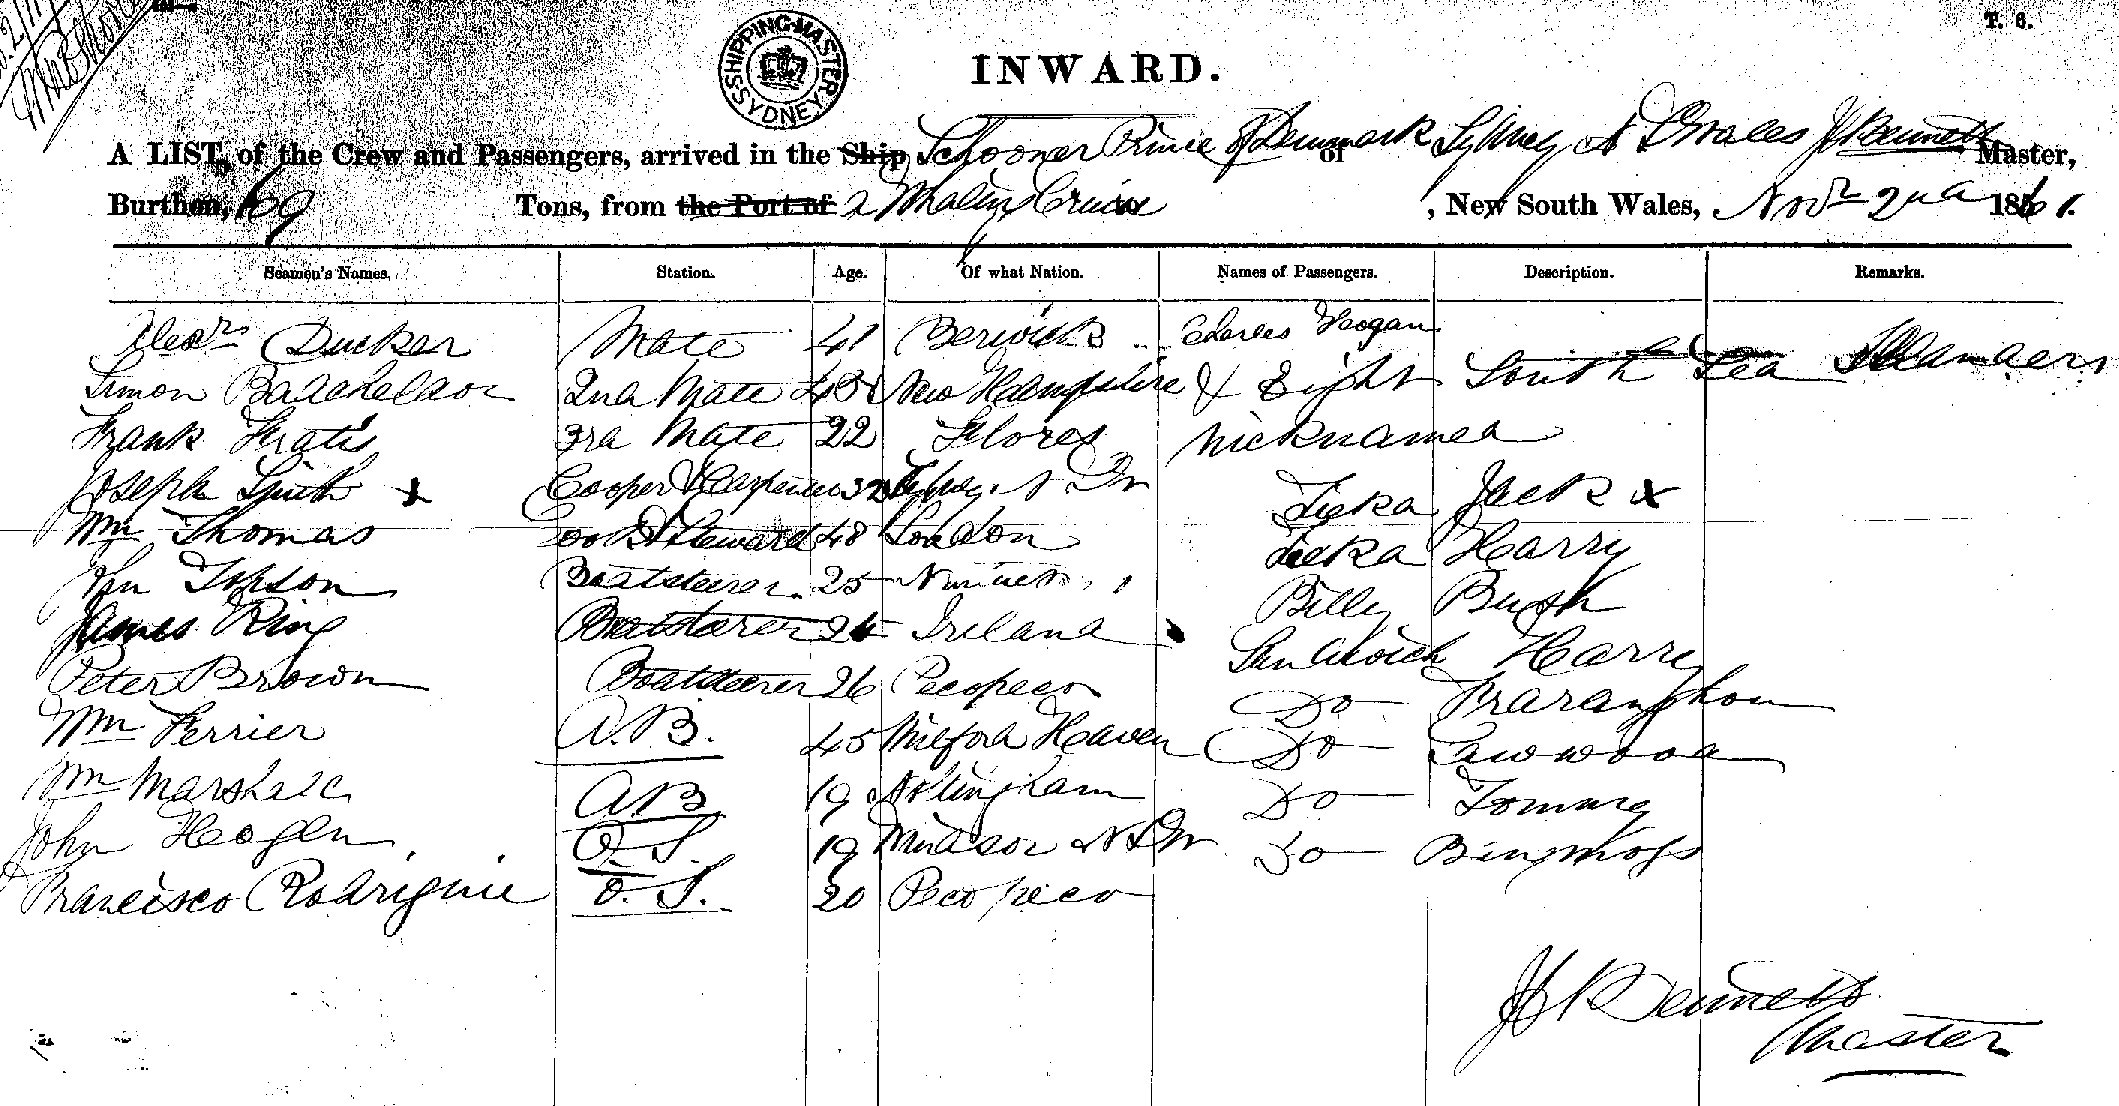 T. 6.
SHIPPING MASTER SYDNEY
INWARD.
A LIST, of the Crew and Passengers, arrived in the Ship Schooner Prince of Denmark of Sydney N S Wales J Bennett Master,
Burthen, 69 Tons, from the Port of a Whaling Cruise to , New South Wales, Novr 2nd 1861.
Seamen's Names. Station. Age. Of what Nation. Names of Passengers. Description. Remarks.
Alexr Ducker Mate 41 Berwick Charles Heogan
Simon Batcheldor 2nd Mate New Hampshire & Eight South Sea Islanders
Frank 3rd Mate 22 Flores Nicknamed
Joseph Smith x Cooper & Carpenter 32 Sydney N S W Jack x
Wm Thomas Cook & Steward 48 London Harry
Jhn Boatsteerer 25 Billy Bush
James Ring Boatsteerer Ireland Sandwich Harry
Peter Brown Boatsteerer 26 Pecopeco Do
Wm Ferrier A.B. 45 Milford Heaven Do
Wm Marshall A B 19 Notingham Do Tommy
John Heogen O. S. 19 Windsor N S W Do
Francisco Rodriguie O. S. 20 Pecopeco
J Bennett
Master